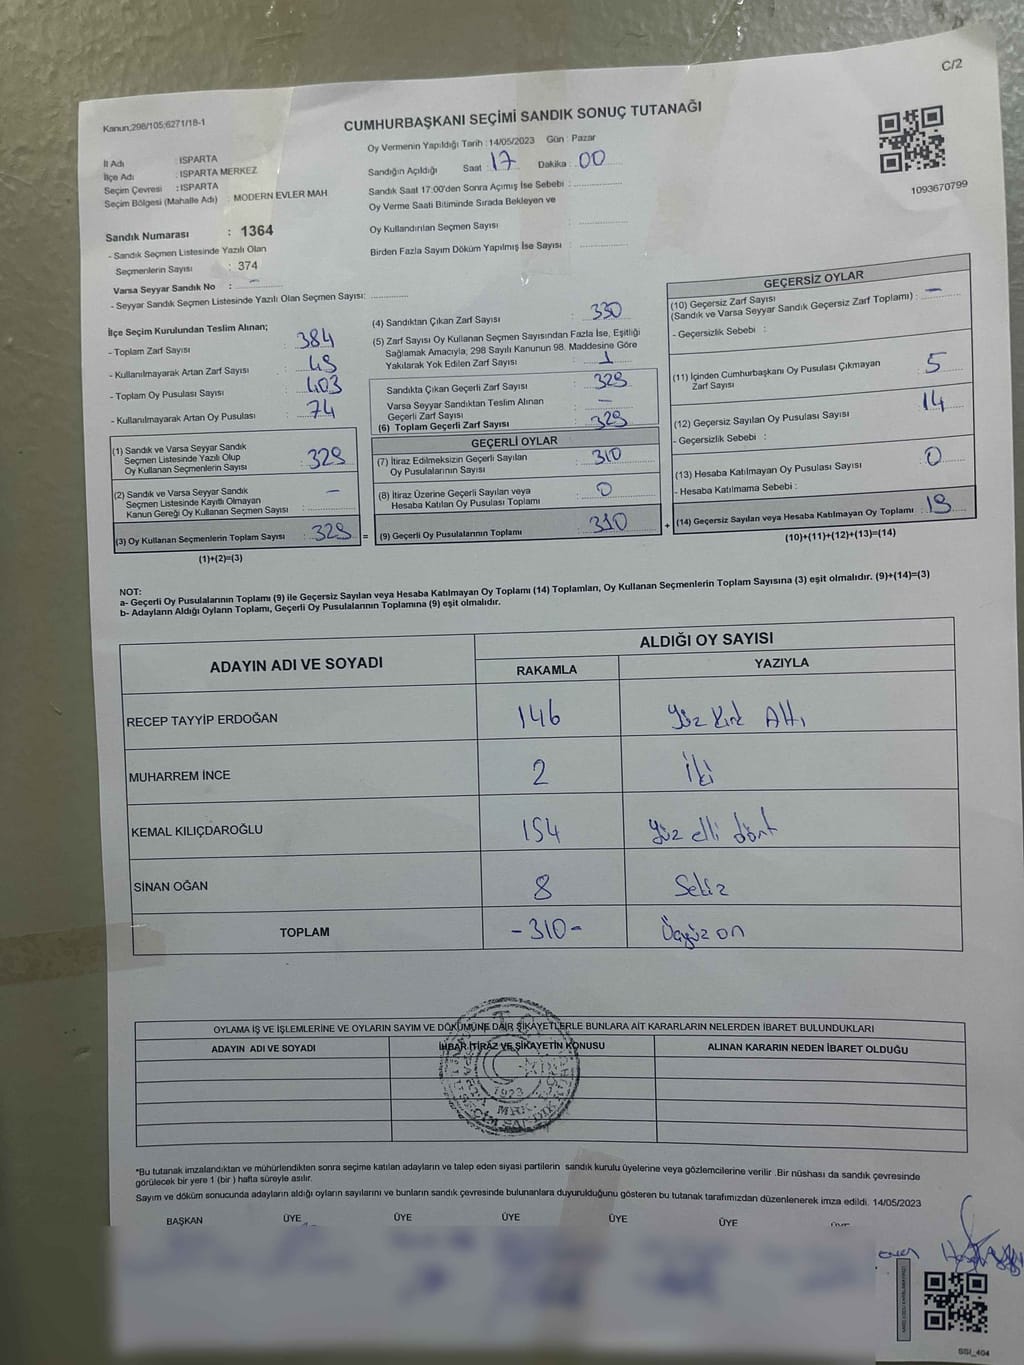 C/2
Kanun;298/105;6271/18-1
CUMHURBAŞKANI SEÇİMİ SANDIK SONUÇ TUTANAĞI
1093670799
İl Adı : ISPARTA
İlçe Adı : ISPARTA MERKEZ
Seçim Çevresi : ISPARTA
Seçim Bölgesi (Mahalle Adı) : MODERN EVLER MAH
Sandık Numarası : 1364
- Sandık Seçmen Listesinde Yazılı Olan
Seçmenlerin Sayısı : 374
Varsa Seyyar Sandık No : -
- Seyyar Sandık Seçmen Listesinde Yazılı Olan Seçmen Sayısı:
Oy Vermenin Yapıldığı Tarih : 14/05/2023 Gün : Pazar
Sandığın Açıldığı Saat : 17 Dakika : 00
Sandık Saat 17:00'den Sonra Açımış İse Sebebi :
Oy Verme Saati Bitiminde Sırada Bekleyen ve
Oy Kullandırılan Seçmen Sayısı :
Birden Fazla Sayım Döküm Yapılmış İse Sayısı :
İlçe Seçim Kurulundan Teslim Alınan;
- Toplam Zarf Sayısı : 384
- Kullanılmayarak Artan Zarf Sayısı :
- Toplam Oy Pusulası Sayısı : 403
- Kullanılmayarak Artan Oy Pusulası : 74
(1) Sandık ve Varsa Seyyar Sandık
Seçmen Listesinde Yazılı Olup
Oy Kullanan Seçmenlerin Sayısı : 329
(2) Sandık ve Varsa Seyyar Sandık
Seçmen Listesinde Kayıtlı Olmayan
Kanun Gereği Oy Kullanan Seçmen Sayısı : -
(3) Oy Kullanan Seçmenlerin Toplam Sayısı : 329 =
(1)+(2)=(3)
(4) Sandıktan Çıkan Zarf Sayısı : 330
(5) Zarf Sayısı Oy Kullanan Seçmen Sayısından Fazla İse, Eşitliği
Sağlamak Amacıyla, 298 Sayılı Kanunun 98. Maddesine Göre
Yakılarak Yok Edilen Zarf Sayısı : 1
Sandıkta Çıkan Geçerli Zarf Sayısı : 329
Varsa Seyyar Sandıktan Teslim Alınan
Geçerli Zarf Sayısı : -
(6) Toplam Geçerli Zarf Sayısı : 329
GEÇERLİ OYLAR
(7) İtiraz Edilmeksizin Geçerli Sayılan
Oy Pusulalarının Sayısı : 310
(8) İtiraz Üzerine Geçerli Sayılan veya
Hesaba Katılan Oy Pusulası Toplamı : 0
(9) Geçerli Oy Pusulalarının Toplamı : 310 +
GEÇERSİZ OYLAR
(10) Geçersiz Zarf Sayısı
(Sandık ve Varsa Seyyar Sandık Geçersiz Zarf Toplamı) : -
- Geçersizlik Sebebi :
(11) İçinden Cumhurbaşkanı Oy Pusulası Çıkmayan
Zarf Sayısı : 5
(12) Geçersiz Sayılan Oy Pusulası Sayısı : 14
- Geçersizlik Sebebi :
(13) Hesaba Katılmayan Oy Pusulası Sayısı : 0
- Hesaba Katılmama Sebebi :
(14) Geçersiz Sayılan veya Hesaba Katılmayan Oy Toplamı : 19
(10)+(11)+(12)+(13)=(14)
NOT:
a- Geçerli Oy Pusulalarının Toplamı (9) ile Geçersiz Sayılan veya Hesaba Katılmayan Oy Toplamı (14) Toplamları, Oy Kullanan Seçmenlerin Toplam Sayısına (3) eşit olmalıdır. (9)+(14)=(3)
b- Adayların Aldığı Oyların Toplamı, Geçerli Oy Pusulalarının Toplamına (9) eşit olmalıdır.
ADAYIN ADI VE SOYADI ALDIĞI OY SAYISI
RAKAMLA YAZIYLA
RECEP TAYYİP ERDOĞAN 146 Yüz Kırk Altı
MUHARREM İNCE 2 İki
KEMAL KILIÇDAROĞLU 154 Yüz elli dört
SİNAN OĞAN 8 Sekiz
TOPLAM -310- Üçyüz on
OYLAMA İŞ VE İŞLEMLERİNE VE OYLARIN SAYIM VE DÖKÜMÜNE DAİR ŞİKAYETLERLE BUNLARA AİT KARARLARIN NELERDEN İBARET BULUNDUKLARI
ADAYIN ADI VE SOYADI İHBAR,İTİRAZ VE ŞİKAYETİN KONUSU ALINAN KARARIN NEDEN İBARET OLDUĞU
T.C.
1923
*Bu tutanak imzalandıktan ve mühürlendikten sonra seçime katılan adayların ve talep eden siyasi partilerin sandık kurulu üyelerine veya gözlemcilerine verilir .Bir nüshası da sandık çevresinde
görülecek bir yere 1 (bir ) hafta süreyle asılır.
Sayım ve döküm sonucunda adayların aldığı oyların sayılarını ve bunların sandık çevresinde bulunanlara duyurulduğunu gösteren bu tutanak tarafımızdan düzenlenerek imza edildi. 14/05/2023
BAŞKAN ÜYE ÜYE ÜYE ÜYE ÜYE
SSI_404